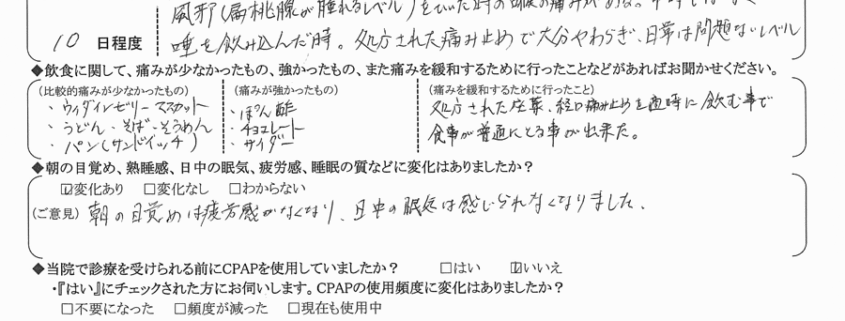 風邪(扁桃腺が腫れるレベル)をひいた時の
10 日程度
唾を飲み込んだ時。処方された痛み止めで大分やわらぎ、日常は問題ないレベル
◆飲食に関して、痛みが少なかったもの、強かったもの、また痛みを緩和するために行ったことなどがあればお聞かせください。
(比較的痛みが少なかったもの) (痛みが強かったもの) (痛みを緩和するために行ったこと)
・ウィダインゼリー マスカット ・ぽん酢 処方された座薬、経口痛み止めを適時に飲む事で
・うどん・そば・そうめん ・チョコレート 食事が普通にとる事が出来た。
・パン(サンドイッチ) ・サイダー
◆朝の目覚め、熟睡感、日中の眠気、疲労感、睡眠の質などに変化はありましたか?
☑変化あり □変化なし □わからない
(ご意見) 朝の目覚めは疲労感がなくなり、日中の眠気は感じられなくなりました。
◆当院で診療を受けられる前にCPAPを使用していましたか? □はい ☑いいえ
・『はい』にチェックされた方にお伺いします。CPAPの使用頻度に変化はありましたか?
□不要になった □頻度が減った □現在も使用中